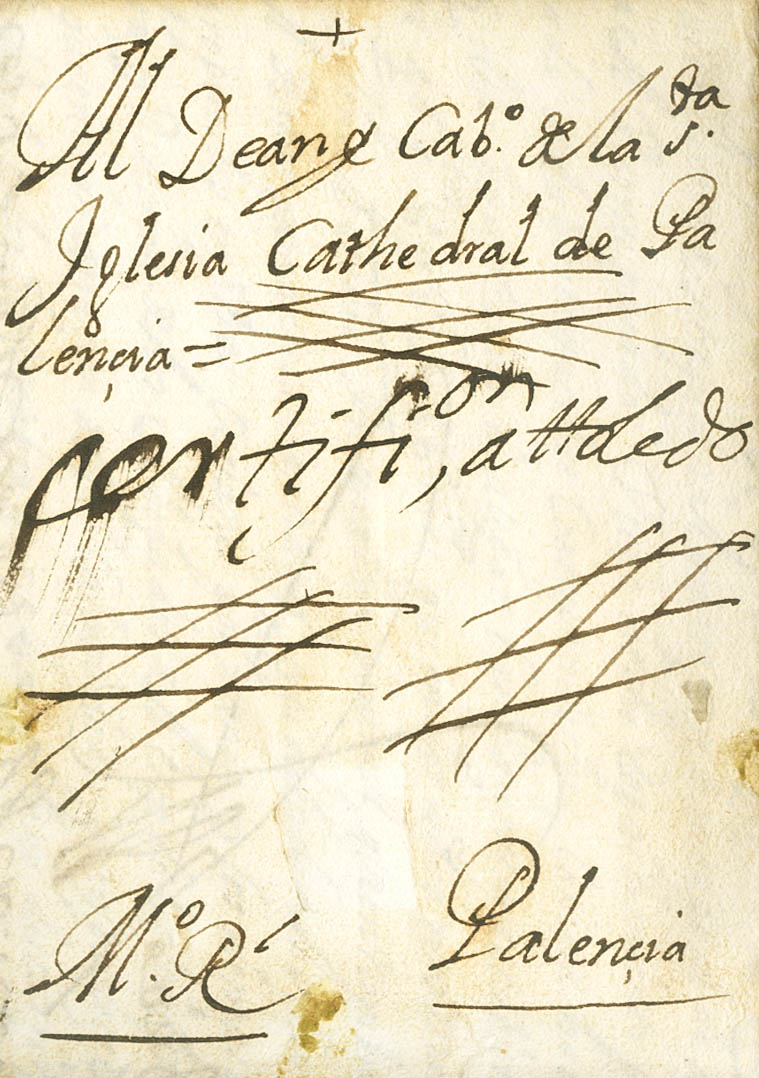 +
Al Dean y Cab.º de la s.ta
Iglesia Cathedral de Pa
lençia =
certifi,on a ttoledo
M.º R.l
Palençia